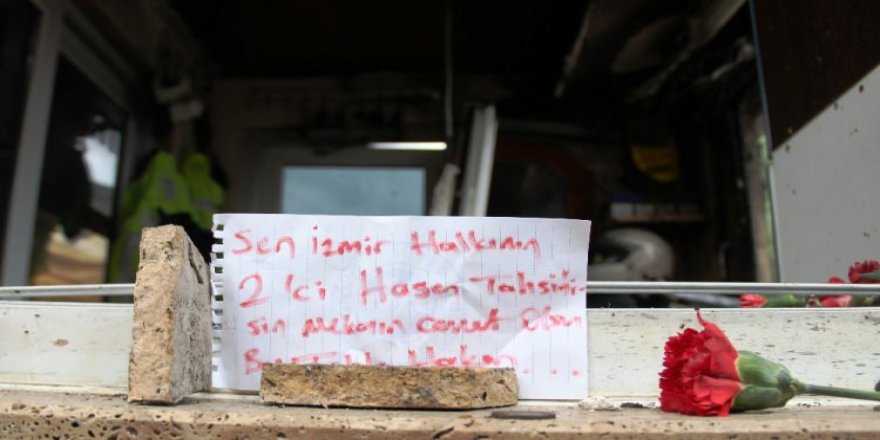 Sen İzmir Halkının
2'ci Hasan Tahsini-
sin mekanın cennet olsun
Hakan...